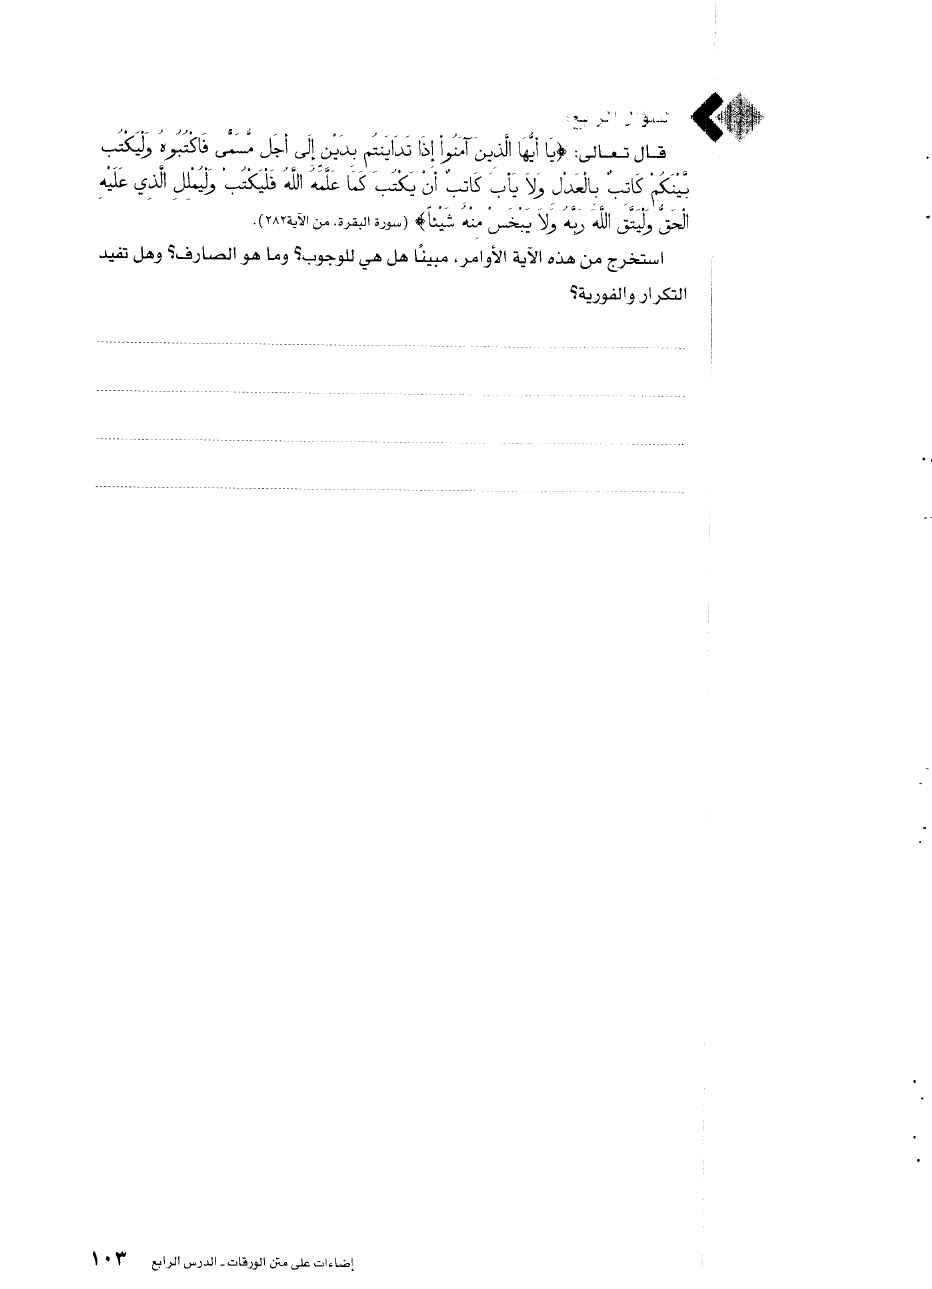 السؤال الرابع:
قال تعالى: ﴿يَا أَيُّهَا الَّذِينَ آمَنُوا إِذَا تَدَايَنتُم بِدَيْنٍ إِلَى أَجَلٍ مُّسَمًّى فَاكْتُبُوهُ وَلْيَكْتُب
بَّيْنَكُمْ كَاتِبٌ بِالْعَدْلِ وَلَا يَأْبَ كَاتِبٌ أَنْ يَكْتُبَ كَمَا عَلَّمَهُ اللَّهُ فَلْيَكْتُبْ وَلْيُمْلِلِ الَّذِي عَلَيْهِ
الْحَقُّ وَلْيَتَّقِ اللَّهَ رَبَّهُ وَلَا يَبْخَسْ مِنْهُ شَيْئاً﴾ (سورة البقرة، من الآية٢٨٢).
استخرج من هذه الآية الأوامر، مبينًا هل هي للوجوب؟ وما هو الصارف؟ وهل تفيد
التكرار والفورية؟
إضاءات على متن الورقات - الدرس الرابع ١٠٣